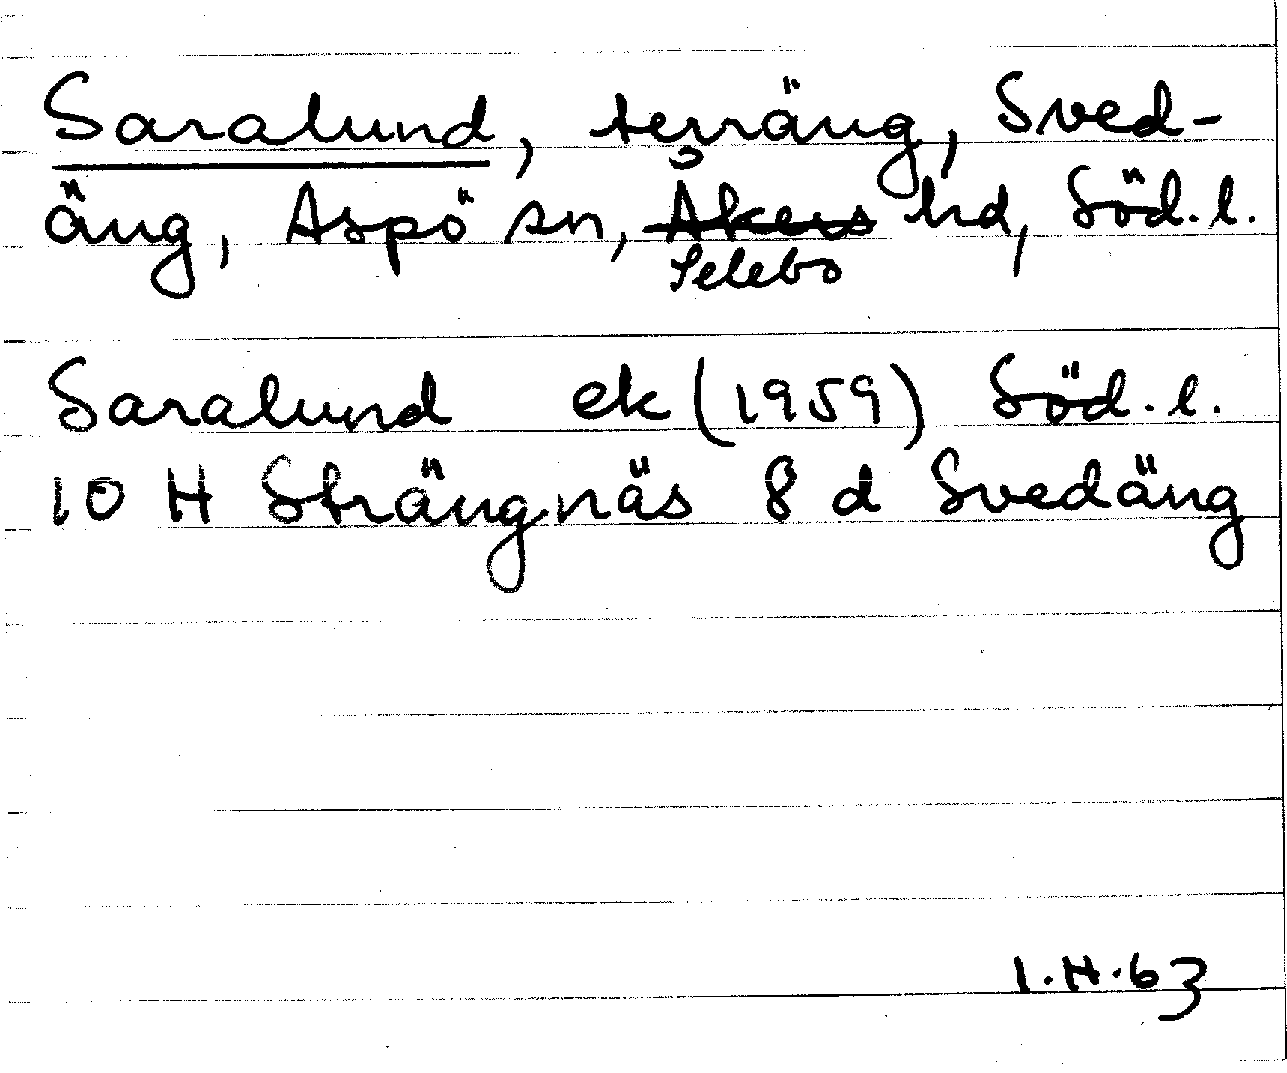 Saralund, terräng, Sved-
äng, Aspö sn, Åkers hd, Söd.l.
Selebo
Saralund ek (1959) Söd.l.
10 H Strängnäs 8 d Svedäng
I.H.63